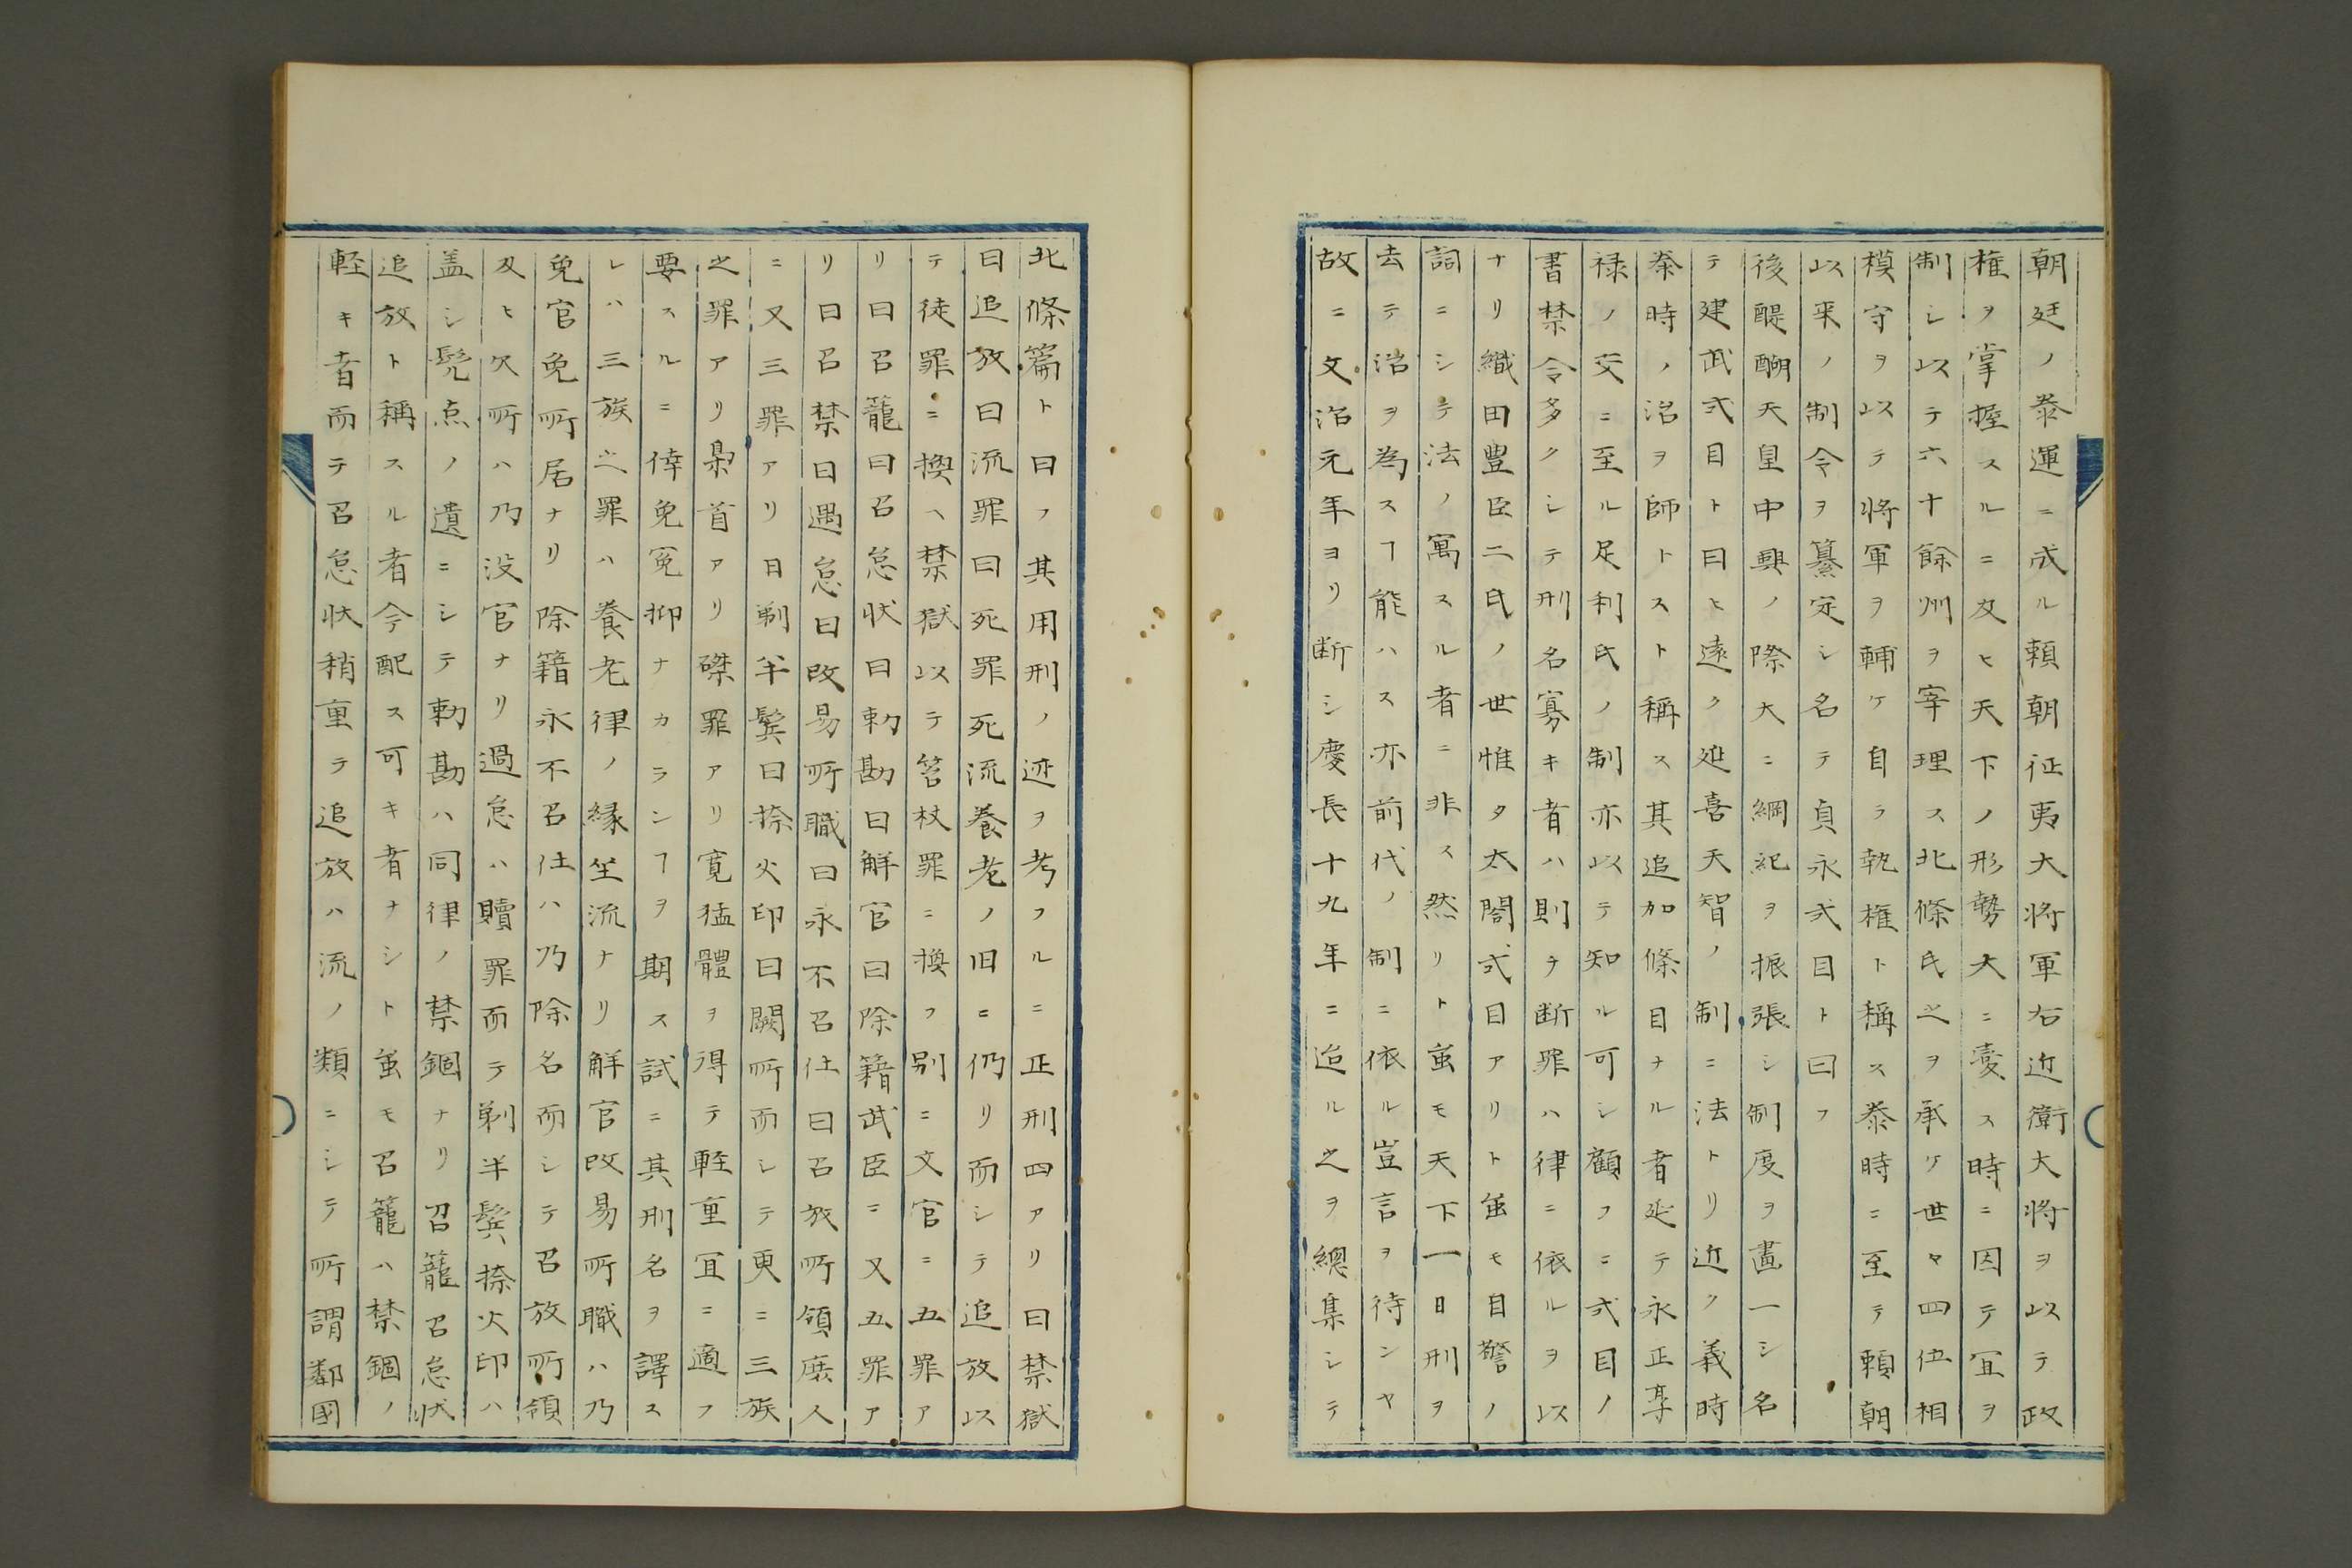 朝廷ノ泰運ニ成ル頼朝征夷大将軍右近衛大将ヲ以テ政
権ヲ掌握スルニ及ヒ天下ノ形勢大ニ変ス時ニ因テ宜ヲ
制シ以テ六十餘州ヲ宰理ス北條氏之ヲ承ケ世々四位相
模守ヲ以テ将軍ヲ輔ケ自ラ執権ト稱ス泰時ニ至テ頼朝
以来ノ制令ヲ纂定シ名テ貞永式目ト曰フ
後醍醐天皇中興ノ際大ニ綱紀ヲ振張シ制度ヲ畫一シ名
テ建武式目ト曰ヒ遠ク延喜天智ノ制ニ法トリ近ク義時
泰時ノ治ヲ師トスト稱ス其追加條目ナル者延テ永正享
禄ノ交ニ至ル足利氏ノ制亦以テ知ル可シ顧フニ式目ノ
書禁令多クシテ刑名寡キ者ハ則チ断罪ハ律ニ依ルヲ以
ナリ織田豊臣二氏ノ世惟タ太閤式目アリト虽モ自警ノ
詞ニシテ法ノ寓スル者ニ非ス然リト虽モ天下一日刑ヲ
去テ治ヲ為スヿ能ハス亦前代ノ制ニ依ル豈言ヲ待ンヤ
故ニ文治元年ヨリ断シ慶長十九年ニ迨ル之ヲ總集シテ
北條篇ト曰フ其用刑ノ迹ヲ考フルニ正刑四アリ曰禁獄
曰追放曰流罪曰死罪死流養老ノ旧ニ仍リ而シテ追放以
テ徒罪ニ換ヘ禁獄以テ笞杖罪ニ換フ別ニ文官ニ五罪ア
リ曰召籠曰召怠状曰勅勘曰解官曰除籍武臣ニ又五罪ア
リ曰召禁曰過怠曰改易所職曰永不召仕曰召放所領庶人
ニ又三罪アリ曰剃半鬢曰捺火印曰闕所而シテ更ニ三族
之罪アリ梟首アリ磔罪アリ寛猛體ヲ得テ軽重宜ニ適フ
要スルニ倖免冤抑ナカランヿヲ期ス試ニ其刑名ヲ譯ス
レハ三族之罪ハ養老律ノ縁坐流ナリ解官改易所職ハ乃
免官免所居ナリ除籍永不召仕ハ乃除名而シテ召放所領
及ヒ欠所ハ乃没官ナリ過怠ハ贖罪而テ剃半鬢捺火印ハ
盖シ髡点ノ遺ニシテ勅勘ハ同律ノ禁錮ナリ召籠召怠状
追放ト稱スル者今配ス可キ者ナシト虽モ召籠ハ禁錮ノ
軽キ者而テ召怠状稍重ラ追放ハ流ノ類ニシテ所謂鄰國